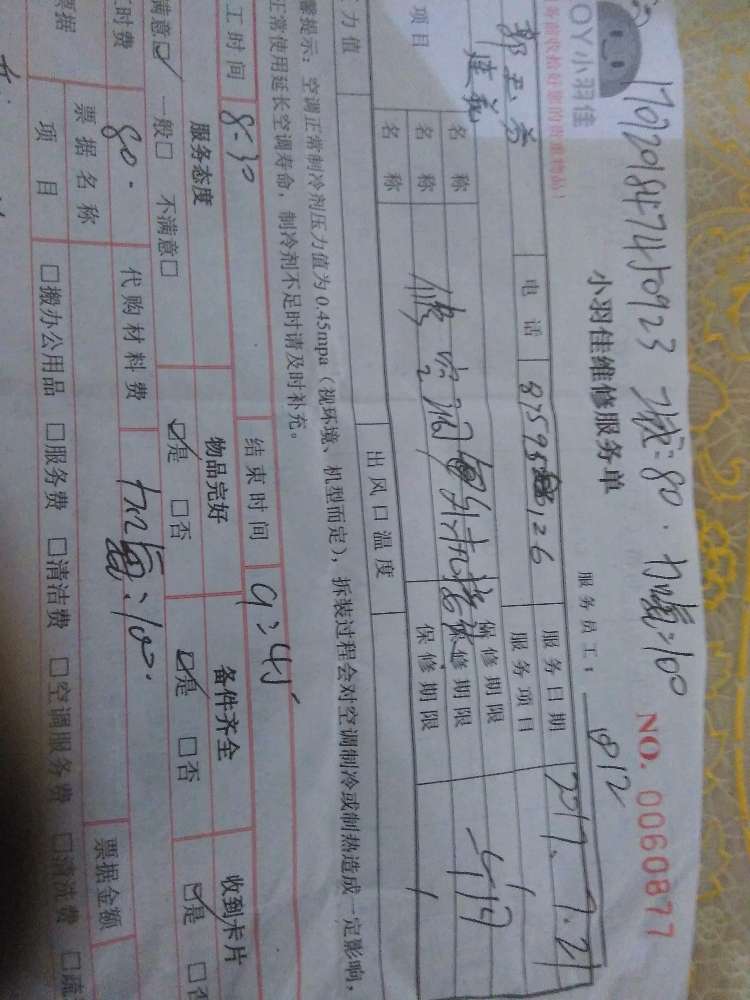 1702091847450923 收:80. 加氟:100
OY小羽佳
务前收检好您的贵重物品!
小羽佳维修服务单
NO. 0060877
服务员工: 812
电话 8759 126 服务日期 2017.7.21
服务项目
项目 名称 保修期限
名称 保修期限
名称 保修期限
力值 出风口温度
馨提示:空调正常制冷剂压力值为0.45mpa(视环境、机型而定),拆装过程会对空调制冷或制热造成一定影响,
正常使用延长空调寿命,制冷剂不足时请及时补充。
工时间 8:30 结束时间 9:45
服务态度 物品完好 备件齐全 收到卡片
满意☑ 一般□ 不满意□ ☑是 □否 ☑是 □否 ☑是 □否
工时费 80. 代购材料费 加氟:100.
票据 票据名称 票据金额
项目 □搬办公用品 □服务费 □清洁费 □空调服务费 □清洗费 □疏